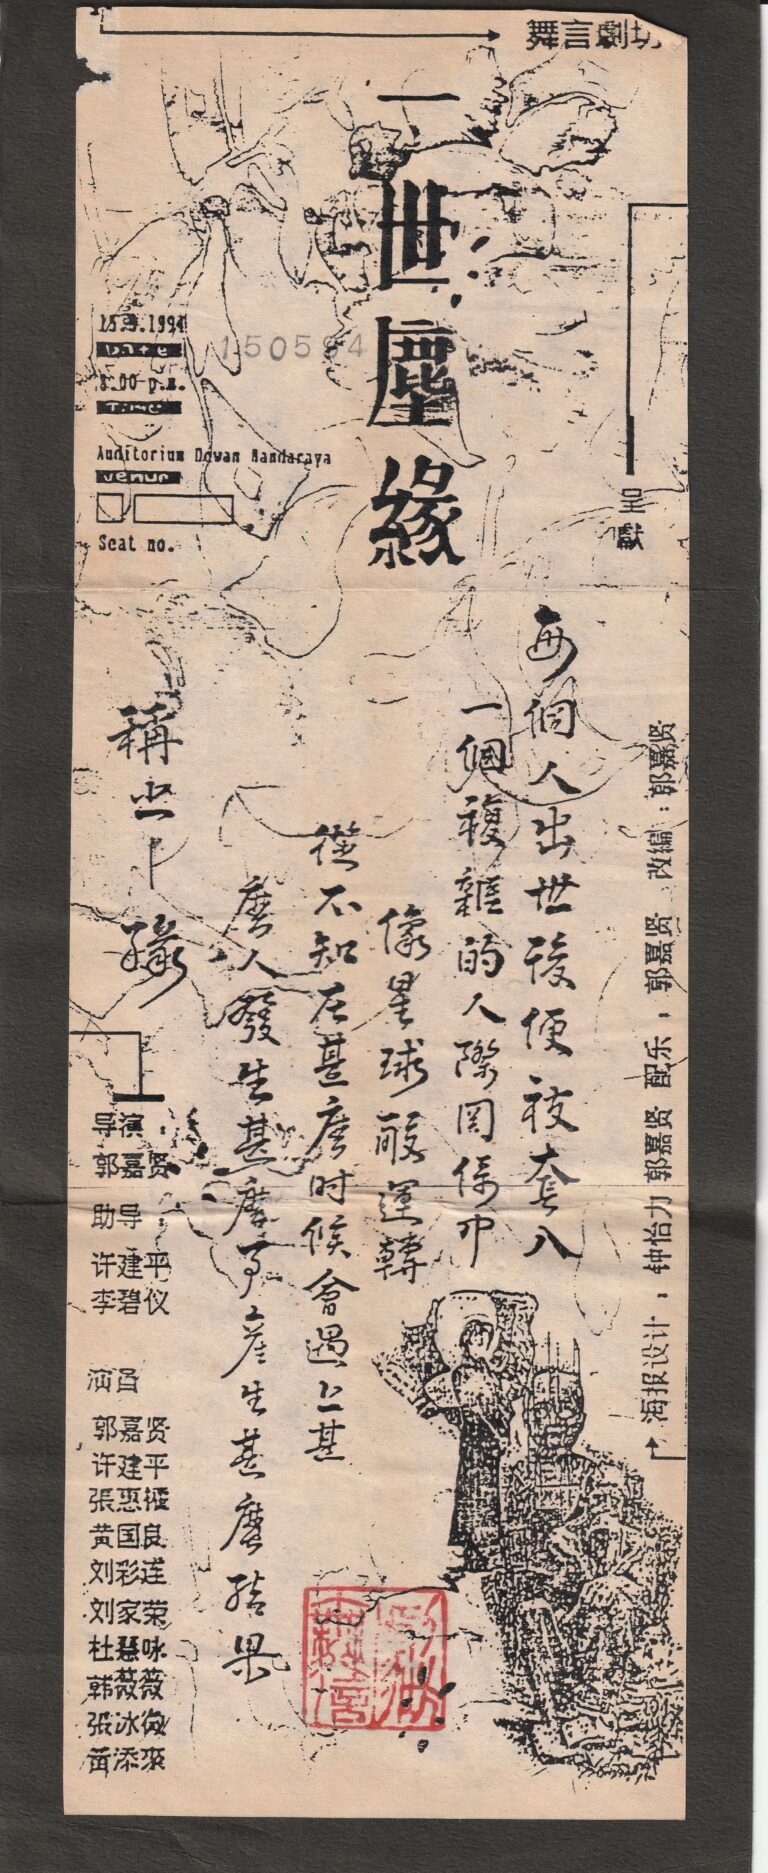 舞言劇坊
呈獻
一世塵緣
15.5.1994
Date
150594
8.00 p.m.
Time
Auditorium Dewan Bandaraya
venue
Seat no.
改編：郭嘉贤
配乐：郭嘉贤
郭嘉贤
海报设计：钟怡力
每個人出世後便被套入
一個複雜的人際関係中
像星球般運轉
從不知在甚麽時候會遇上甚
麽人發生甚麽事產生甚麽結果
稱之
緣
导演：
郭嘉贤
助导
许建平
李碧仪
演员
郭嘉贤
许建平
張惠
黄国良
刘彩莲
刘家荣
杜慧咏
韩薇薇
張冰
黃添來